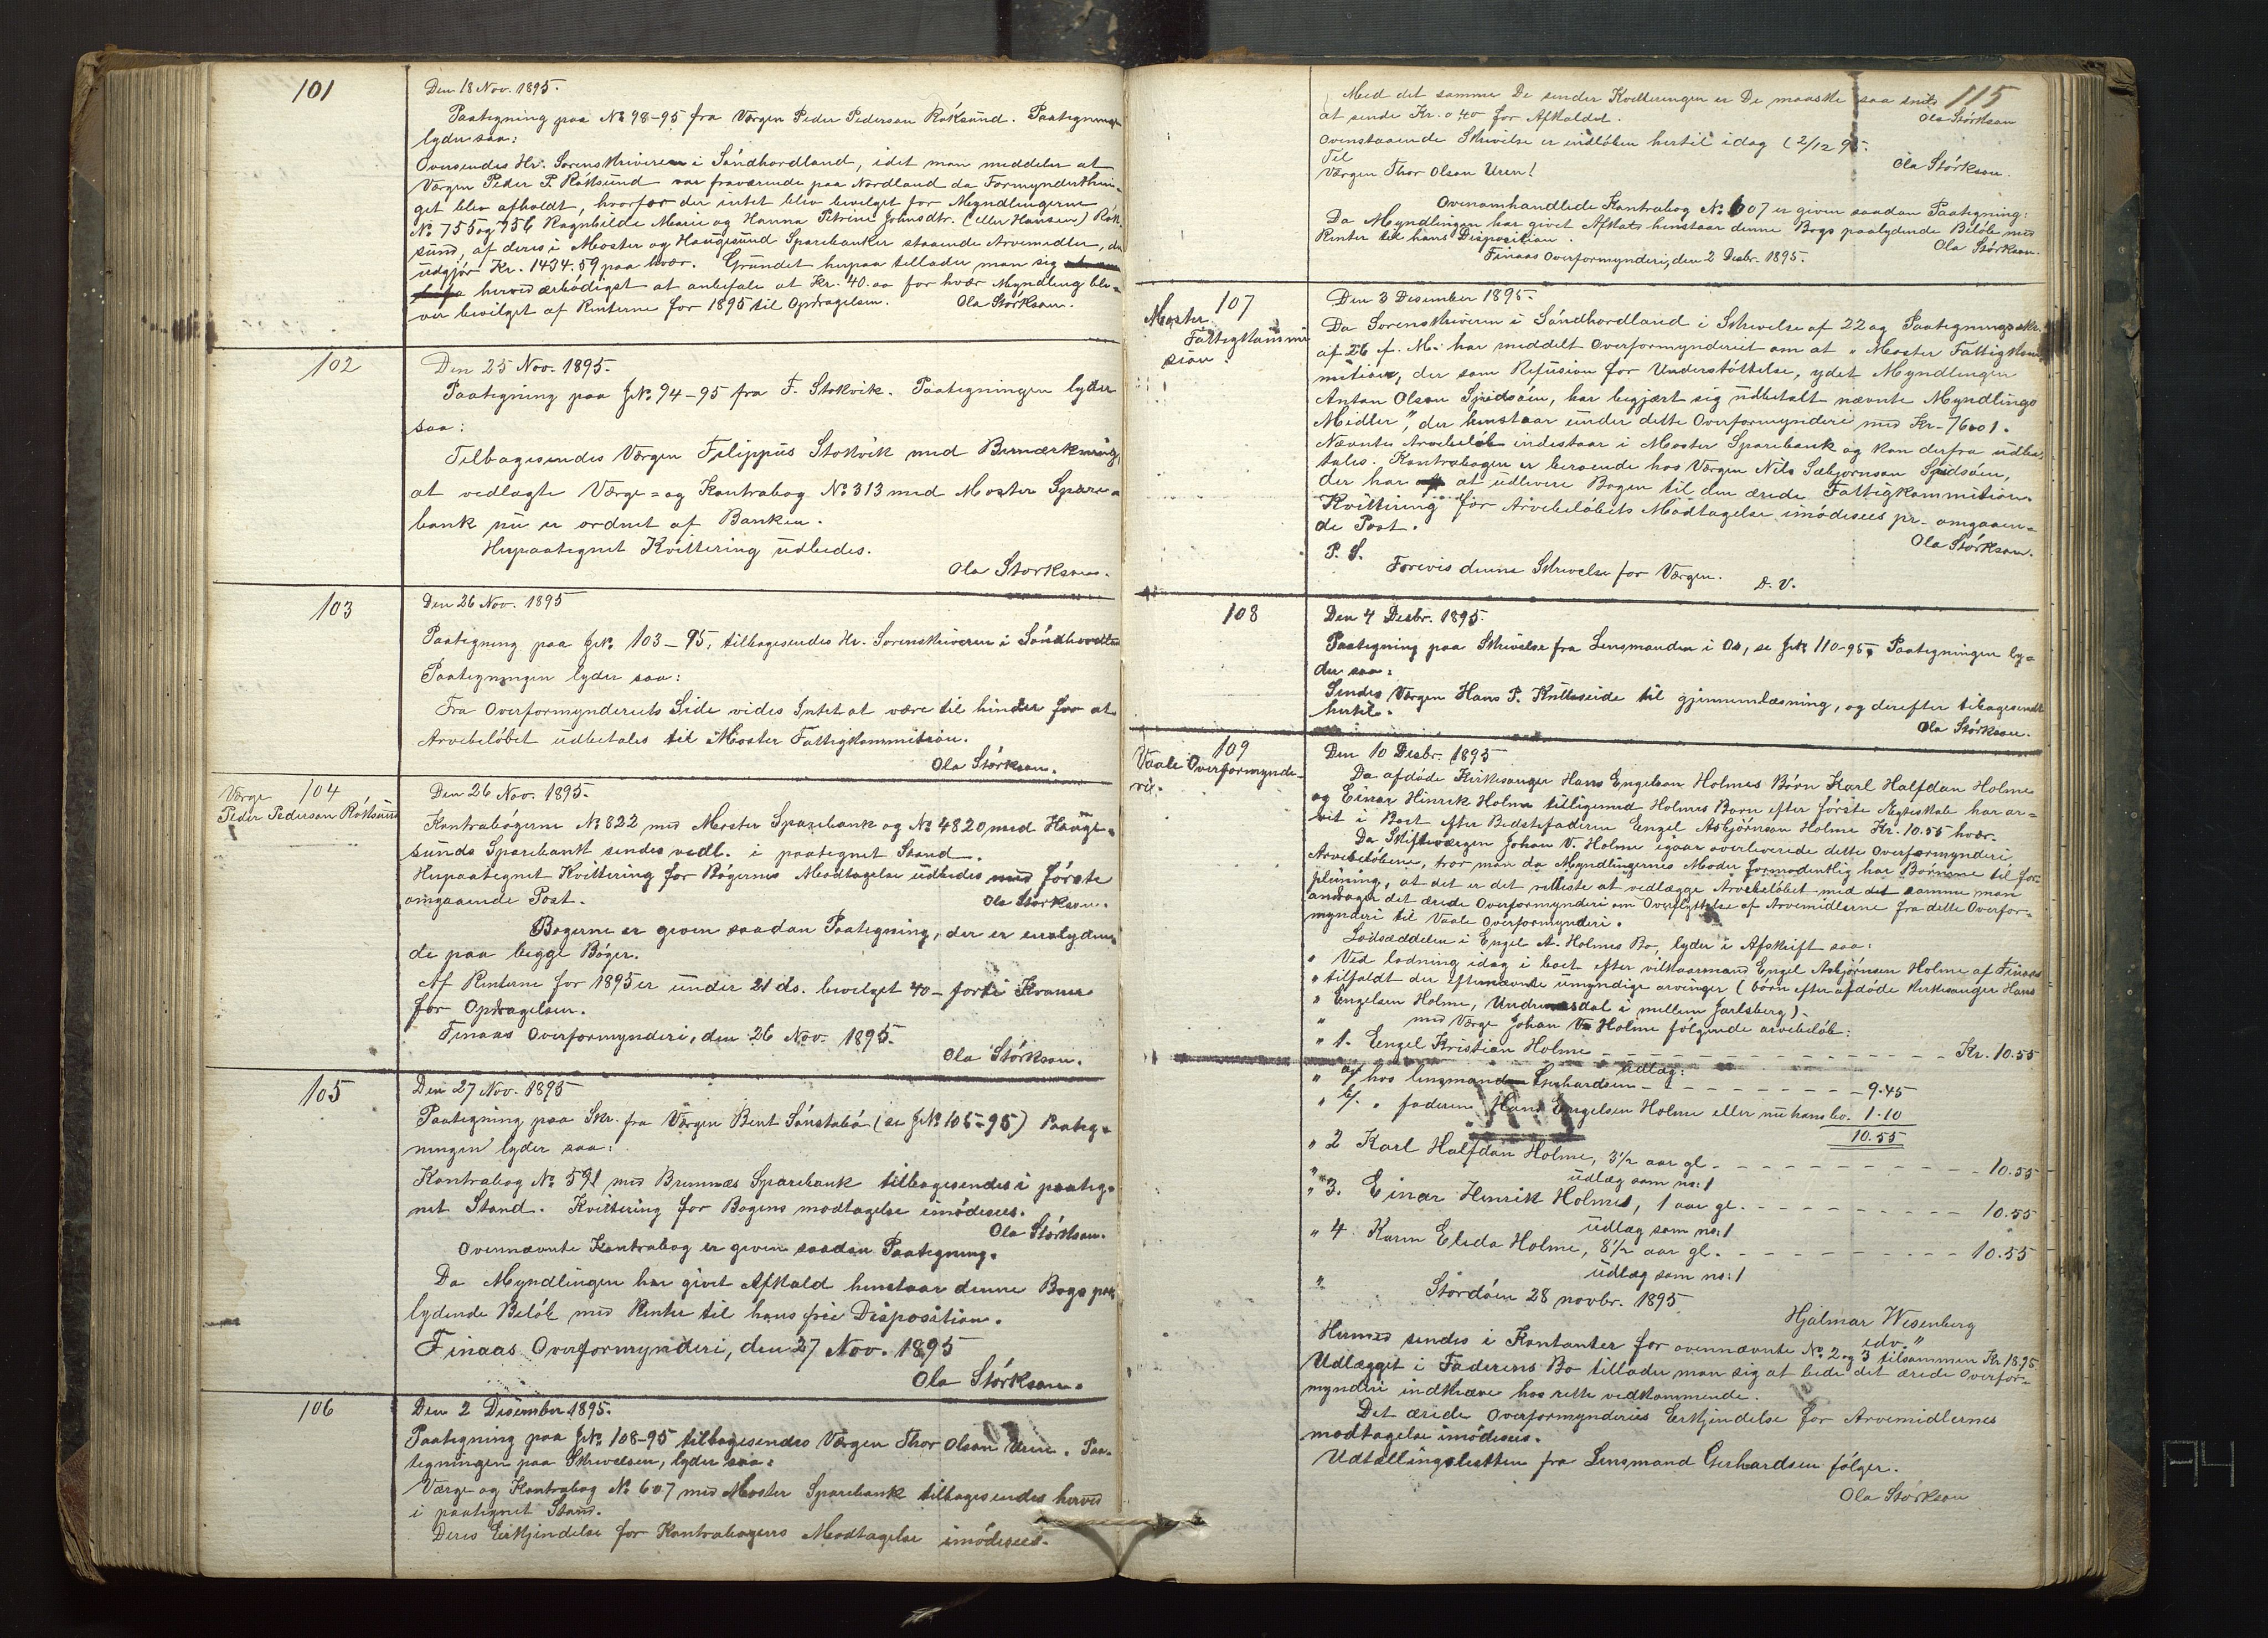 101
Den 18 Nov. 1895.
Paategning paa №98-95 fra Værgen Peder Pederson Røksund. Paategningen
lyder saa:
Oversendes Hr. Sorenskriveren i Søndhordland, idet man meddeler at
Værgen Peder P. Røksund var fraværende paa Nordland da Formynderthin-
get blev afholdt, hvorfor der intet blev bevilget for Myndlingerne
№ 755 og 756 Ragnhilde Marie og Hanna Petrine Johnsdtr. (eller Hansen) Røk-
sund, af deres i Moster og Haugesund Sparebanker staaende Arvemidler, der
udgjør Kr. 1434.59 paa hver. Grundet herpaa tillader man sig
herved ærbødigst at anbefale at Kr. 40.00 for hver Myndling bli-
ver bevilget af Renterne for 1895 til Opdragelsen. Ola Størkson.
102
Den 25 Nov. 1895.
Paategning paa J№ 94-95 fra F. Stokvik. Paategningen lyder
saa:
Tilbagesendes Værgen Filippus Stokvik med Bemærkning,
at vedlagte Værge= og Kontrabog №313 med Moster Spare=
bank nu er ordnet af Banken.
Herpaategnet Kvittering udbedes.
Ola Størkson.
103
Den 26 Nov. 1895
Paategning paa J№ 103-95, tilbagesendes Hr. Sorenskriveren i Søndhordland
Paategningen lyder saa:
Fra Overformynderiets Side vides Intet at være til hinder for at
Arvebeløbet udbetales til Moster Fattigkommision.
Ola Størkson.
Værge 104
Peder Pederson Røksund
Den 26 Nov. 1895.
Kontrabøgerne №822 med Moster Sparebank og №4820 med Hauge=
sunds Sparebank sendes vedl. i paategnet Stand.
Herpaategnet Kvittering for Bøgernes Modtagelse udbedes med første
omgaaende Post. Ola Størkson.
Bøgerne er given saadan Paategning, der er enslyden-
de paa begge Bøger.
Af Renterne for 1895 er under 21 ds. bevilget 40- forti Kroner
for Opdragelsen.
Finaas Overformynderi, den 26 Nov. 1895.
Ola Størkson.
105
Den 27 Nov. 1895
Paategning paa Skr. fra Værgen Bent Sønstabø (se J№ 105-95) Paateg=
ningen lyder saa:
Kontrabog № 591 med Bremnæs Sparebank tilbagesendes i paateg=
net Stand. Kvittering for Bogens modtagelse imødesees.
Ola Størkson.
Ovennævnte Kontrabog er given saadan Paategning.
Da Myndlingen har givet Afkald henstaar denne Bogs paa-
lydende Beløb med Renter til hans frie Disposition.
Finaas Overformynderi, den 27 Nov. 1895
Ola Størkson.
106
Den 2 Desember 1895.
Paategning paa J№ 108-95 tilbagesendes Værgen Thor Olson Uren. Paa-
tegningen paa Skrivelsen, lyder saa:
Værge og Kontrabog № 607 med Moster Sparebank tilbagesendes herved
i paategnet Stand.
Deres Erkjendelse for Kontrabogens Modtagelse imødesees.
115
Med det samme De sender Kvitteringen er De maaske saa snil
at sende Kr. 0 40 for Afkaldet. Ola Størkson
Ovenstaaende Skrivelse er indløben hertil idag (2/12 95.
Til Ola Størkson.
Værgen Thor Olson Uren!
Ovenomhandlede Kontrabog № 607 er given saadan Paategning:
Da Myndlingen har givet Afkald henstaar denne Bogs paalydende Beløb med
Renter til hans Disposition. Ola Størkson.
Finaas Overformynderi, den 2 Desbr. 1895.
107
Moster
Fattigkommi
sion.
Den 3 Desember 1895.
Da Sorenskriveren i Søndhordland i Skrivelse af 22 og Paategningsskr.
af 26 f. M. har meddelt Overformynderiet om at „Moster Fattigkom-
mision, der som Refusion for Understøttelse, ydet Myndlingen
Anton Olson Spidsøen, har begjært sig udbetalt nævnte Myndlings
Midler", der henstaar under dette Overformynderi med Kr. 76001.
Nævnte Arvebeløb indestaar i Moster Sparebank og kan derfra udbe-
tales. Kontrabogen er beroende hos Værgen Nils Sæbjørnson Spidsøen,
der har at udlevere Bogen til den ærede Fattigkommision.
Kvittering for Arvebeløbets Modtagelse imødesees pr. omgaaen=
de Post. Ola Størkson.
P. S.
Forevis denne Skrivelse for Værgen. D. V.
108
Den 4 Desbr. 1895.
Paategning paa Skrivelse fra Lensmanden i Os, se J№ 110-95, Paategningen ly=
der saa:
Sendes Værgen Hans P. Kulleseide til gjennemlæsning, og derefter tilbagesendt
hertil. Ola Størkson.
109
Vaale Overformynde-
ri.
Den 10 Desbr. 1895
Da afdøde Kirkesanger Hans Engelson Holmes Børn Karl Halfdan Holme
og Einar Hinrik Holme tilligemed Holmes Barn efter første Egteskab har ar=
vet i Boet efter Bedstefaderen Engel Asbjørnson Holme Kr. 10.55 hver.
Da Skifteværgen Johan V. Holme igaar overleverede dette Overformynderi
Arvebeløbene, tror man da Myndlingernes Moder formodentlig har Børnene til for-
pleining, at det er det retteste at vedlægge Arvebeløbet med det samme man
andrager det ærede Overformynderi om Overflyttelse af Arvemidlerne fra dette Overfor-
mynderi til Vaale Overformynderi.
Lodseddelen i Engel A. Holmes Bo, lyder i Afskrift saa:
„ Ved lodning idag i boet efter vilkaarmand Engel Asbjørnsen Holme af Finaas
„ tilfaldt der efternævnte umyndige arvinger (børn efter afdøde kirkesanger Hans
„ Engelsen Holme, Undrumsdal i mellem Jarlsberg).
„ med Værge Johan V. Holme følgende arvebeløb:
„ 1. Engel Kristian Holme - - - - - Kr. 10.55
Udlæg:
„ a/ hos lensmanden Gerhardsen - - - - 9.45
„ b/. „ faderen Hans Engelsen Holme eller nu hans bo. 1.10
10.55
„ 2 Karl Halfdan Holme, 3½ aar gl. - - - - 10.55
„ udlæg som no: 1
„ 3. Einar Henrik Holme, 1 aar gl. - - - - 10.55
udlæg som no: 1
„ 4. Karen Elida Holme, 8½ aar gl. - - - - 10.55
udlæg som no: 1
„ Stordøen 28 novbr. 1895
Hjalmar Wesenberg
edv."
Hermed sendes i Kontanter for ovennævnte № 2 og 3 tilsammen Kr 18.95
Udlægget i Faderens Bo tillader man sig at bede det ærede Overfor=
mynderi indkræve hos rette vedkommende.
Det ærede Overformynderies Erkjendelse for Arvemidlernes
modtagelse imødesees.
Udtællingsletten fra Lensmand Gerhardsen følger.
Ola Størkson